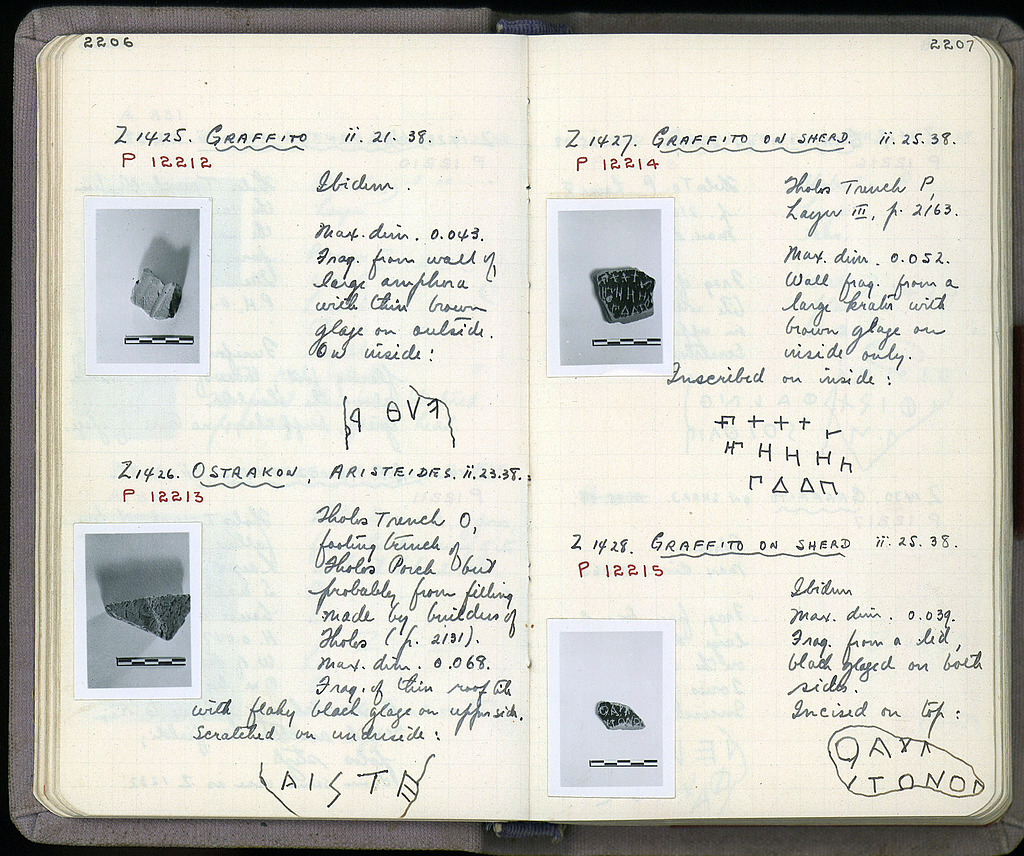 2206
Z 1425. GRAFFITO ii. 21. 38.
P 12212
Ibidem.
Max. dim. 0.043.
Frag. from wall of
large amphora
with thin brown
glaze on outside.
On inside:
Z 1426. OSTRAKON, ARISTEIDES. ii. 23. 38.
P 12213
Tholos Trench O,
footing trench of
Tholos Porch but
probably from filling
made by builders of
Tholos (p. 2131).
Max. dim. 0.068.
Frag. of thin roof tile
with flaky black glaze on upper side.
Scratched on underside:
ΑΙΣΤΕ
2207
Z 1427. GRAFFITO ON SHERD. ii. 25. 38.
P 12214
Tholos Trench P,
Layer III, p. 2163.
Max. dim. 0.052.
Wall frag. from a
large krater with
brown glaze on
inside only.
Inscribed on inside:
Z 1428. GRAFFITO ON SHERD ii. 25. 38.
P 12215
Ibidem
Max. dim. 0.039.
Frag. from a lid,
black glazed on both
sides.
Incised on top: